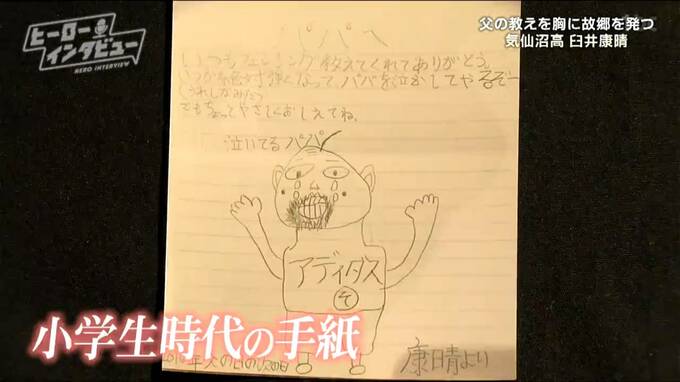 ヒーロー
インタビュー
HERO INTERVIEW
父の教えを胸に故郷を発つ
気仙沼高 臼井康晴
パパへ
いつもフェンシング教えてくれてありがとう。
いつか絶対強くなって、パパを泣かしてやるぞー
(うれしなみだ)
でもちょっとやさしくおしえてね。
泣いてるパパ
アディダス
そ
小学生時代の手紙
年父の日の次の日
康晴より